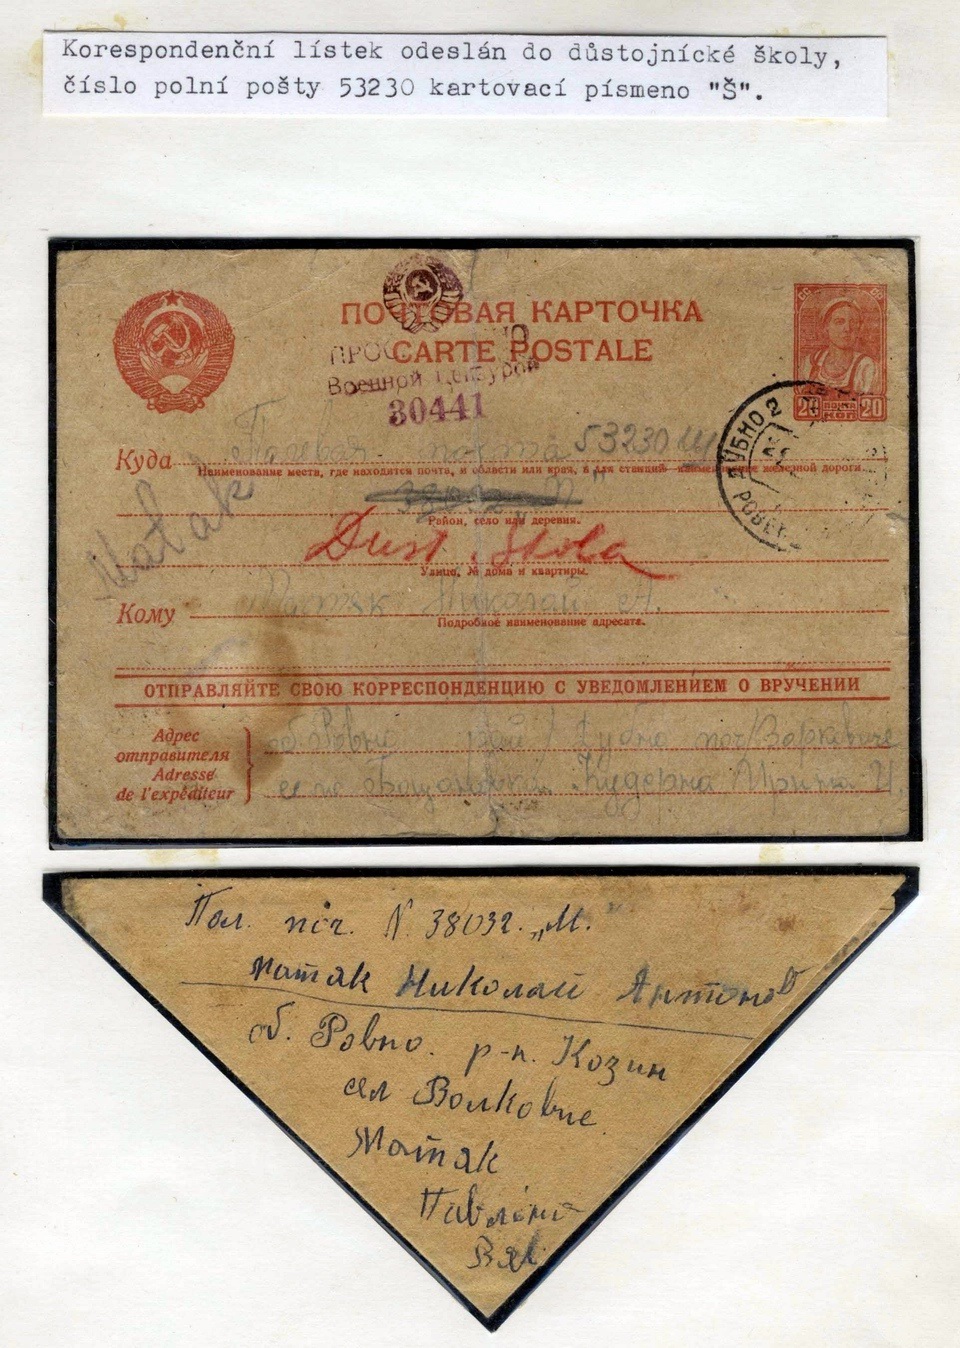 Korespondenční lístek odeslán do důstojnické školy,
číslo polní pošty 53230 kartovací písmeno "Š".
ПОЧТОВАЯ КАРТОЧКА
CARTE POSTALE
Военной Цензурой
30441
20 ПОЧТА КОП 20
ДУБНО 2
Куда Полевая почта 53230 Ш
Наименование места, где находится почта, и области или края, а для станций наименование железной дороги.
Район, село или деревня.
Maťak
Dust. Škola
Улица, № дома и квартиры.
Кому Николай А.
Подробное наименование адресата.
ОТПРАВЛЯЙТЕ СВОЮ КОРРЕСПОНДЕНЦИЮ С УВЕДОМЛЕНИЕМ О ВРУЧЕНИИ
Адрес
отправителя
Adresse
de l'expéditeur
об Ровно рай Дубно
село Кудерна Ирина И.
Пол. поч. N. 38032. „М.
Матак Николай Антонов
об. Ровно. р-н. Козин
сел Волковые
Матак